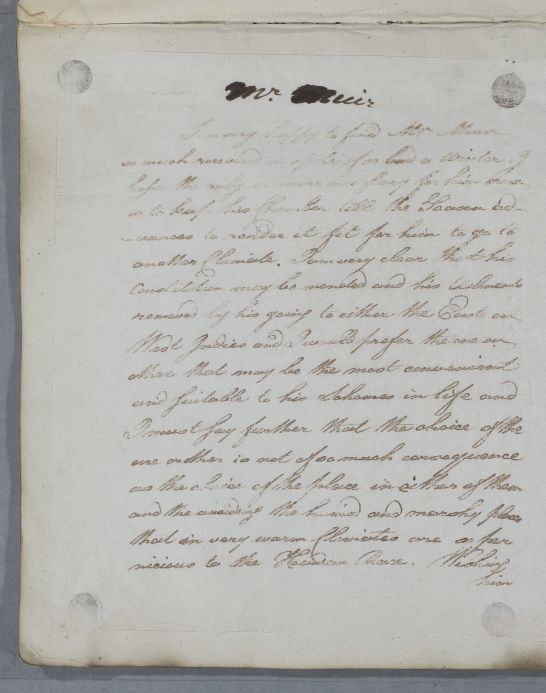 Mr. Muir
I am very happy to find Mr. Muir
so much recovered in spite of so bad a Winter. I
hope the only measure necessary for him now
is to keep his Chamber till the Season ad-
-vances to render it fit for him to go to
another Climate. I am very clear that his
Constitution may be mended and his Ailments
removed by his going to either the East or
West Indies and I would prefer the one or
other that may be the most convenient
and suitable to his Schemes in life and
I must say further that the choice of the
one or other is not of so much consequence
as the choice of the place in either of them
and the avoiding the humid and marshy places
that in very warm Climates are so per
nicious to the Human Race. Wishing
him